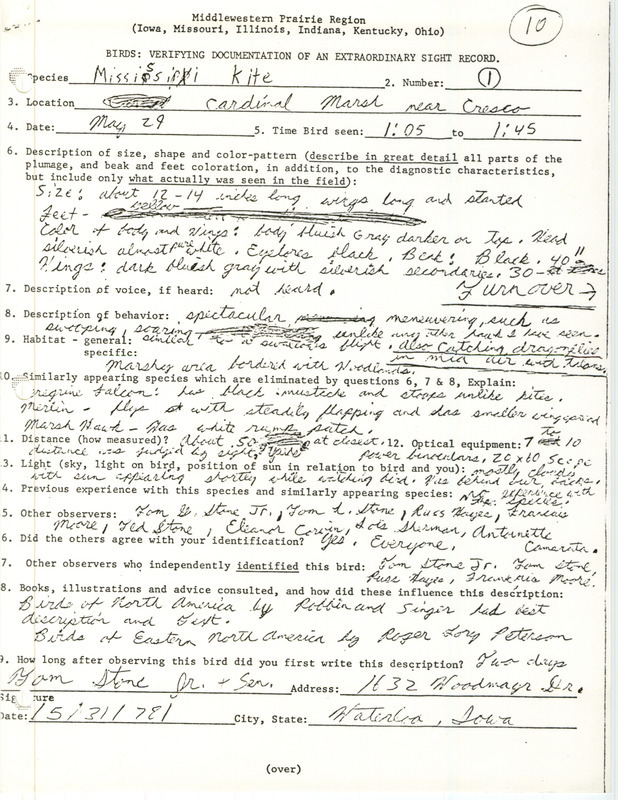 Middlewestern Prairie Region
(Iowa, Missouri, Illinois, Indiana, Kentucky, Ohio)
10
BIRDS: VERIFYING DOCUMENTATION OF AN EXTRAORDINARY SIGHT RECORD.
Species Mississippi Kite 2. Number: 1
3. Location Cardinal Marsh near Cresco
4. Date: May 29 5. Time Bird seen: 1:05 to 1:45
6. Description of size, shape and color-pattern (describe in great detail all parts of the
plumage, and beak and feet coloration, in addition, to the diagnostic characteristics,
but include only what actually was seen in the field):
Size: about 12-14 inches long wings long and slanted
feet - yellow
Color of body and Wings: body bluish Gray darker on Top. Head
silverish almost pure white. Eyelores black. Beak: Black. 40"
Wings: dark bluish gray with silverish secondaries. 30-
7. Description of voice, if heard: not heard. Turn over →
8. Description of behavior: spectacular maneuvering, such as
swooping, soaring unlike any other hawk I have seen.
similar to a swallows flight. also Catching dragonflies
in mid air with talons.
9. Habitat - general:
specific: Marshy area bordered with Woodlands.
10. Similarly appearing species which are eliminated by questions 6, 7 & 8, Explain:
Peregrine Falcon: has black mustache and stoops unlike kites.
Merlin - flys with steadily flapping and has smaller wingspread
Marsh Hawk - Has white rump patch.
11. Distance (how measured)? About 50 yards at closest. 12. Optical equipment: 7 to 10
distance was judged by sight. power binoculars. 20 x 60 Scope
13. Light (sky, light on bird, position of sun in relation to bird and you): mostly cloudy
with sun appearing shortly while watching bird. Was behind our backs.
14. Previous experience with this species and similarly appearing species: No experience with
the species.
15. Other observers: Tom G. Stone Jr., Tom L. Stone, Russ Hayes, Francis
Moore, Ted Stone, Eleanor Corwin, Lois Sherman, Antoinette
Camarata.
16. Did the others agree with your identification? Yes. Everyone.
17. Other observers who independently identified this bird: Tom Stone Jr. Tom Stone,
Russ Hayes, Francis Moore.
18. Books, illustrations and advice consulted, and how did these influence this description:
Birds of North America by Robbin and Singer had best
description and Text.
Birds of Eastern North America by Roger Tory Peterson
19. How long after observing this bird did you first write this description? Two days
Tom Stone Jr. + Sen. Address: 1632 Woodmayr Dr.
Signature
Date: 5/31/78 City, State: Waterloo, Iowa
(over)